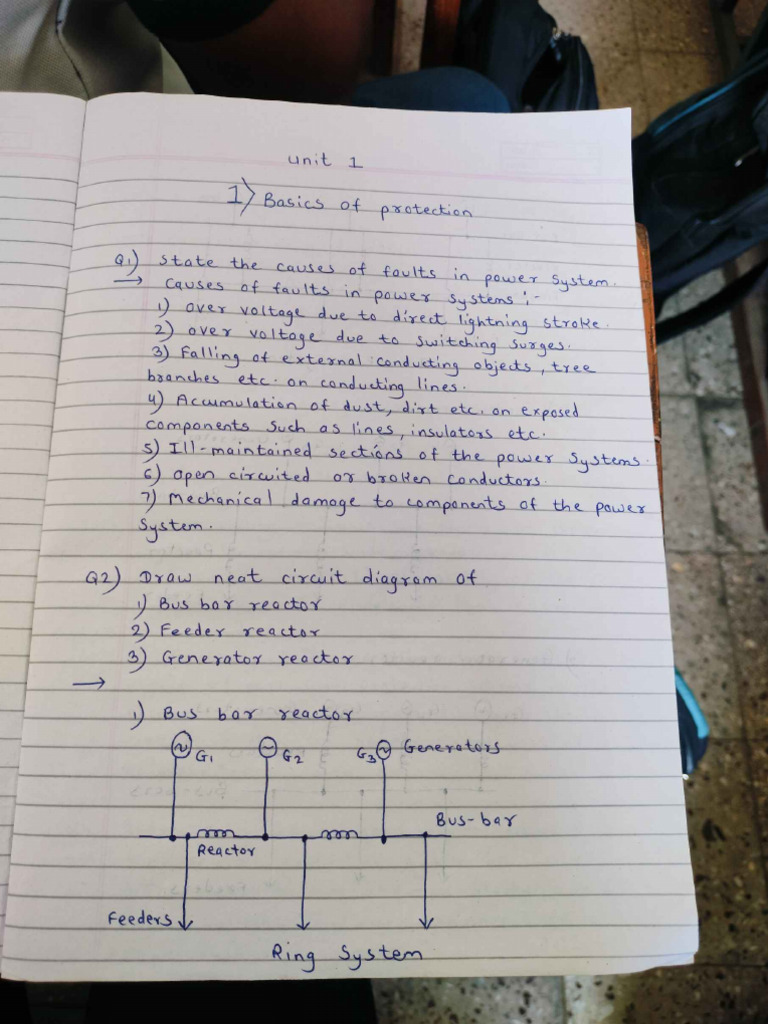 Unit 1
1) Basics of protection
Q1) State the causes of faults in power system.
→ Causes of faults in power systems :-
1) over voltage due to direct lightning stroke.
2) over voltage due to switching surges.
3) Falling of external conducting objects, tree
branches etc. on conducting lines.
4) Accumulation of dust, dirt etc. on exposed
components such as lines, insulators etc.
5) Ill-maintained sections of the power systems.
6) open circuited or broken conductors.
7) Mechanical damage to components of the power
system.
Q2) Draw neat circuit diagram of
1) Bus bar reactor
2) Feeder reactor
3) Generator reactor
→
1) Bus bar reactor
G1 G2 G3 Generators
Bus-bar
Reactor
Feeders
Ring System